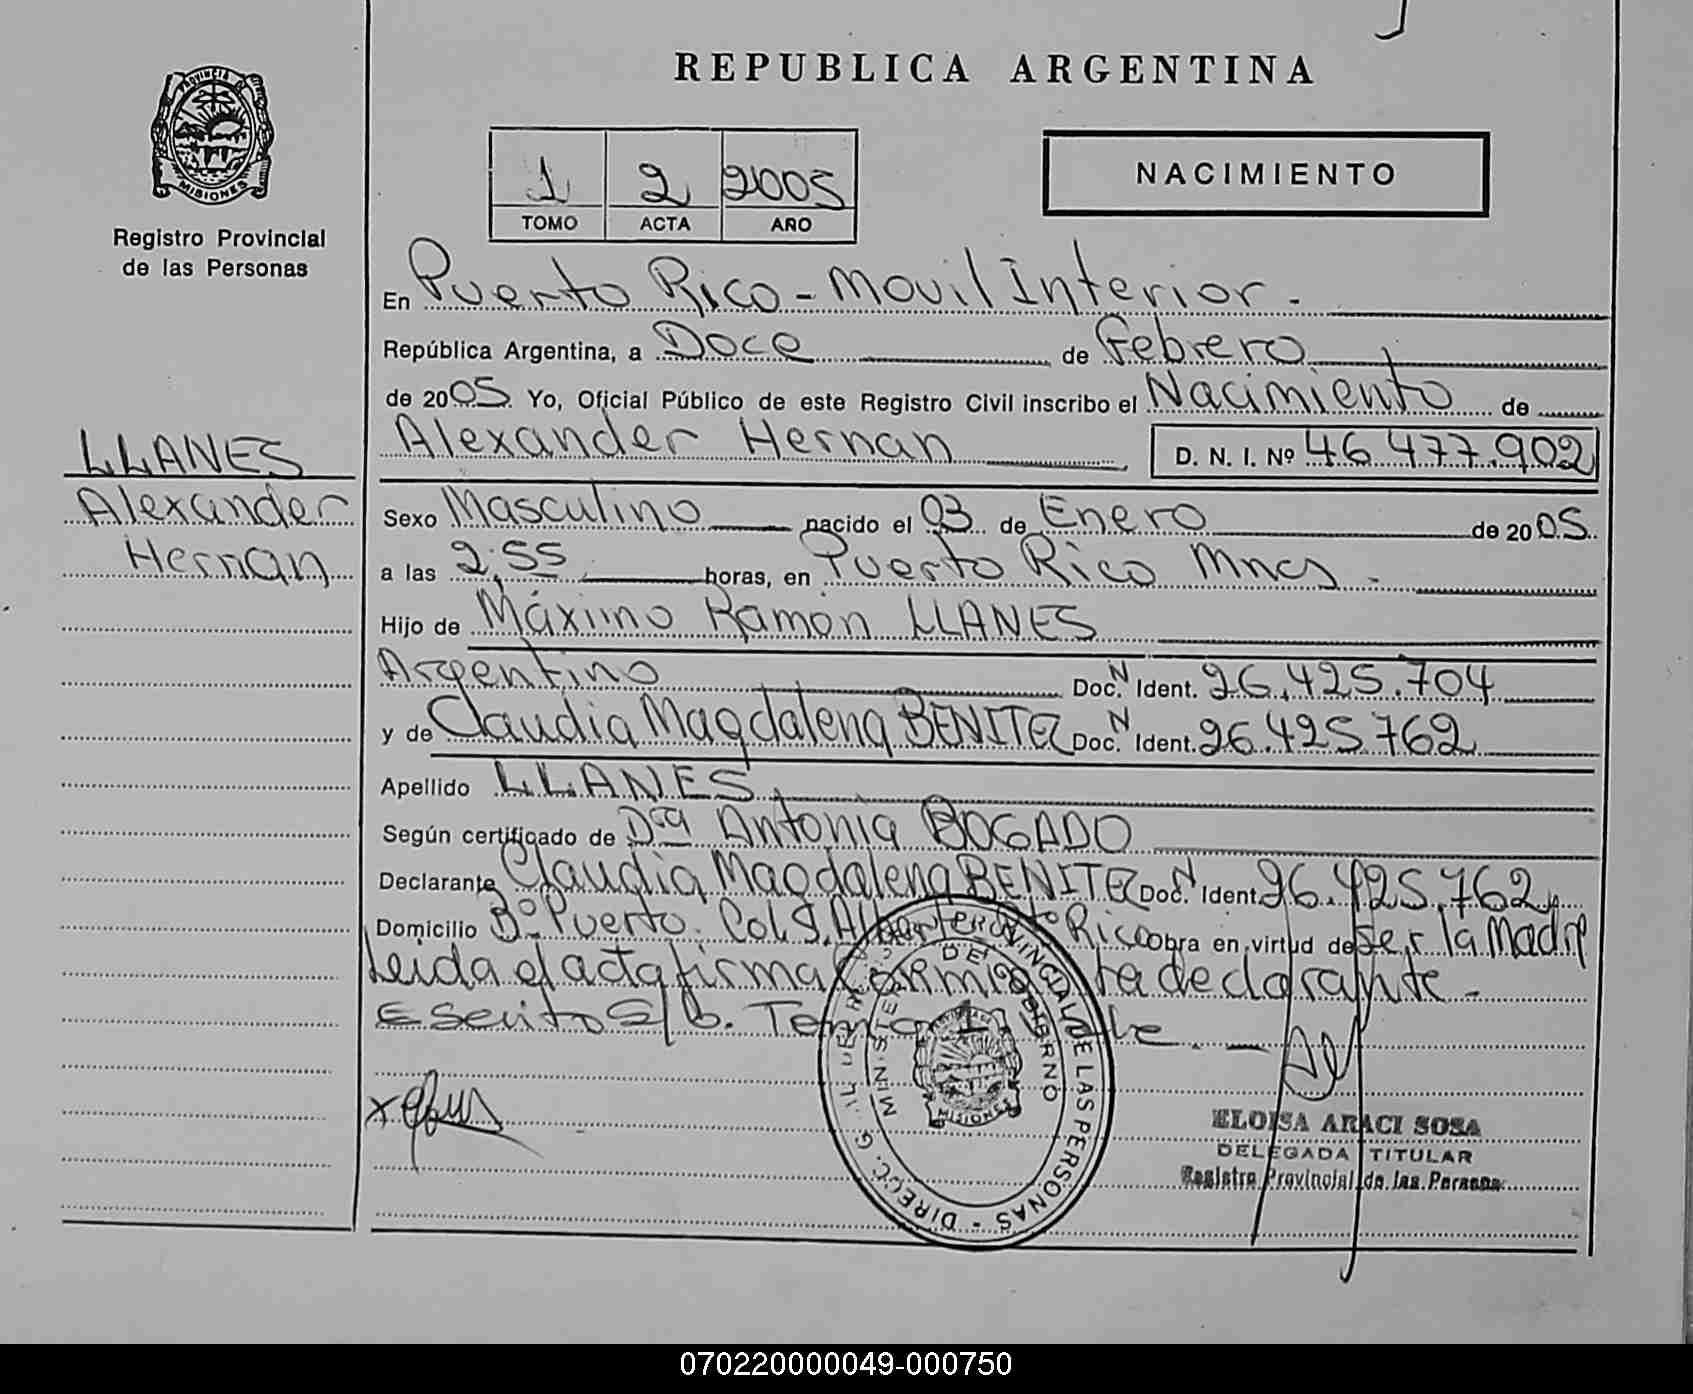 REPUBLICA ARGENTINA
PROVINCIA
MISIONES
Registro Provincial
de las Personas
NACIMIENTO
1 2 2005
TOMO ACTA AÑO
En Puerto Rico - Movil Interior.
República Argentina, a Doce de Febrero
de 2005 Yo, Oficial Público de este Registro Civil inscribo el Nacimiento de
Alexander Hernan D. N. I. Nº 46.477.902
LLANES
Alexander
Hernan
Sexo Masculino nacido el 03 de Enero de 2005
a las 2:55 horas, en Puerto Rico Mnes.
Hijo de Máximo Ramón LLANES
Argentino Doc. N Ident. 26.425.704
y de Claudia Magdalena BENITEZ Doc. N Ident. 26.425.762
Apellido LLANES
Según certificado de Dra Antonia BOGADO
Declarante Claudia Magdalena BENITEZ Doc. N Ident 26.425.762
Domicilio Bº Puerto. Col S. Alberto Pto Rico obra en virtud de Ser la Madre
Leída el acta firma conmigo la declarante.
Escrito S/b. Vale. -
ELOISA ARACI SOSA
DELEGADA TITULAR
Registro Provincial de las Personas
PROVINCIAL DE LAS PERSONAS - DIRECC. G
MINISTERIO DE GOBIERNO
1
MISIONES
070220000049-000750